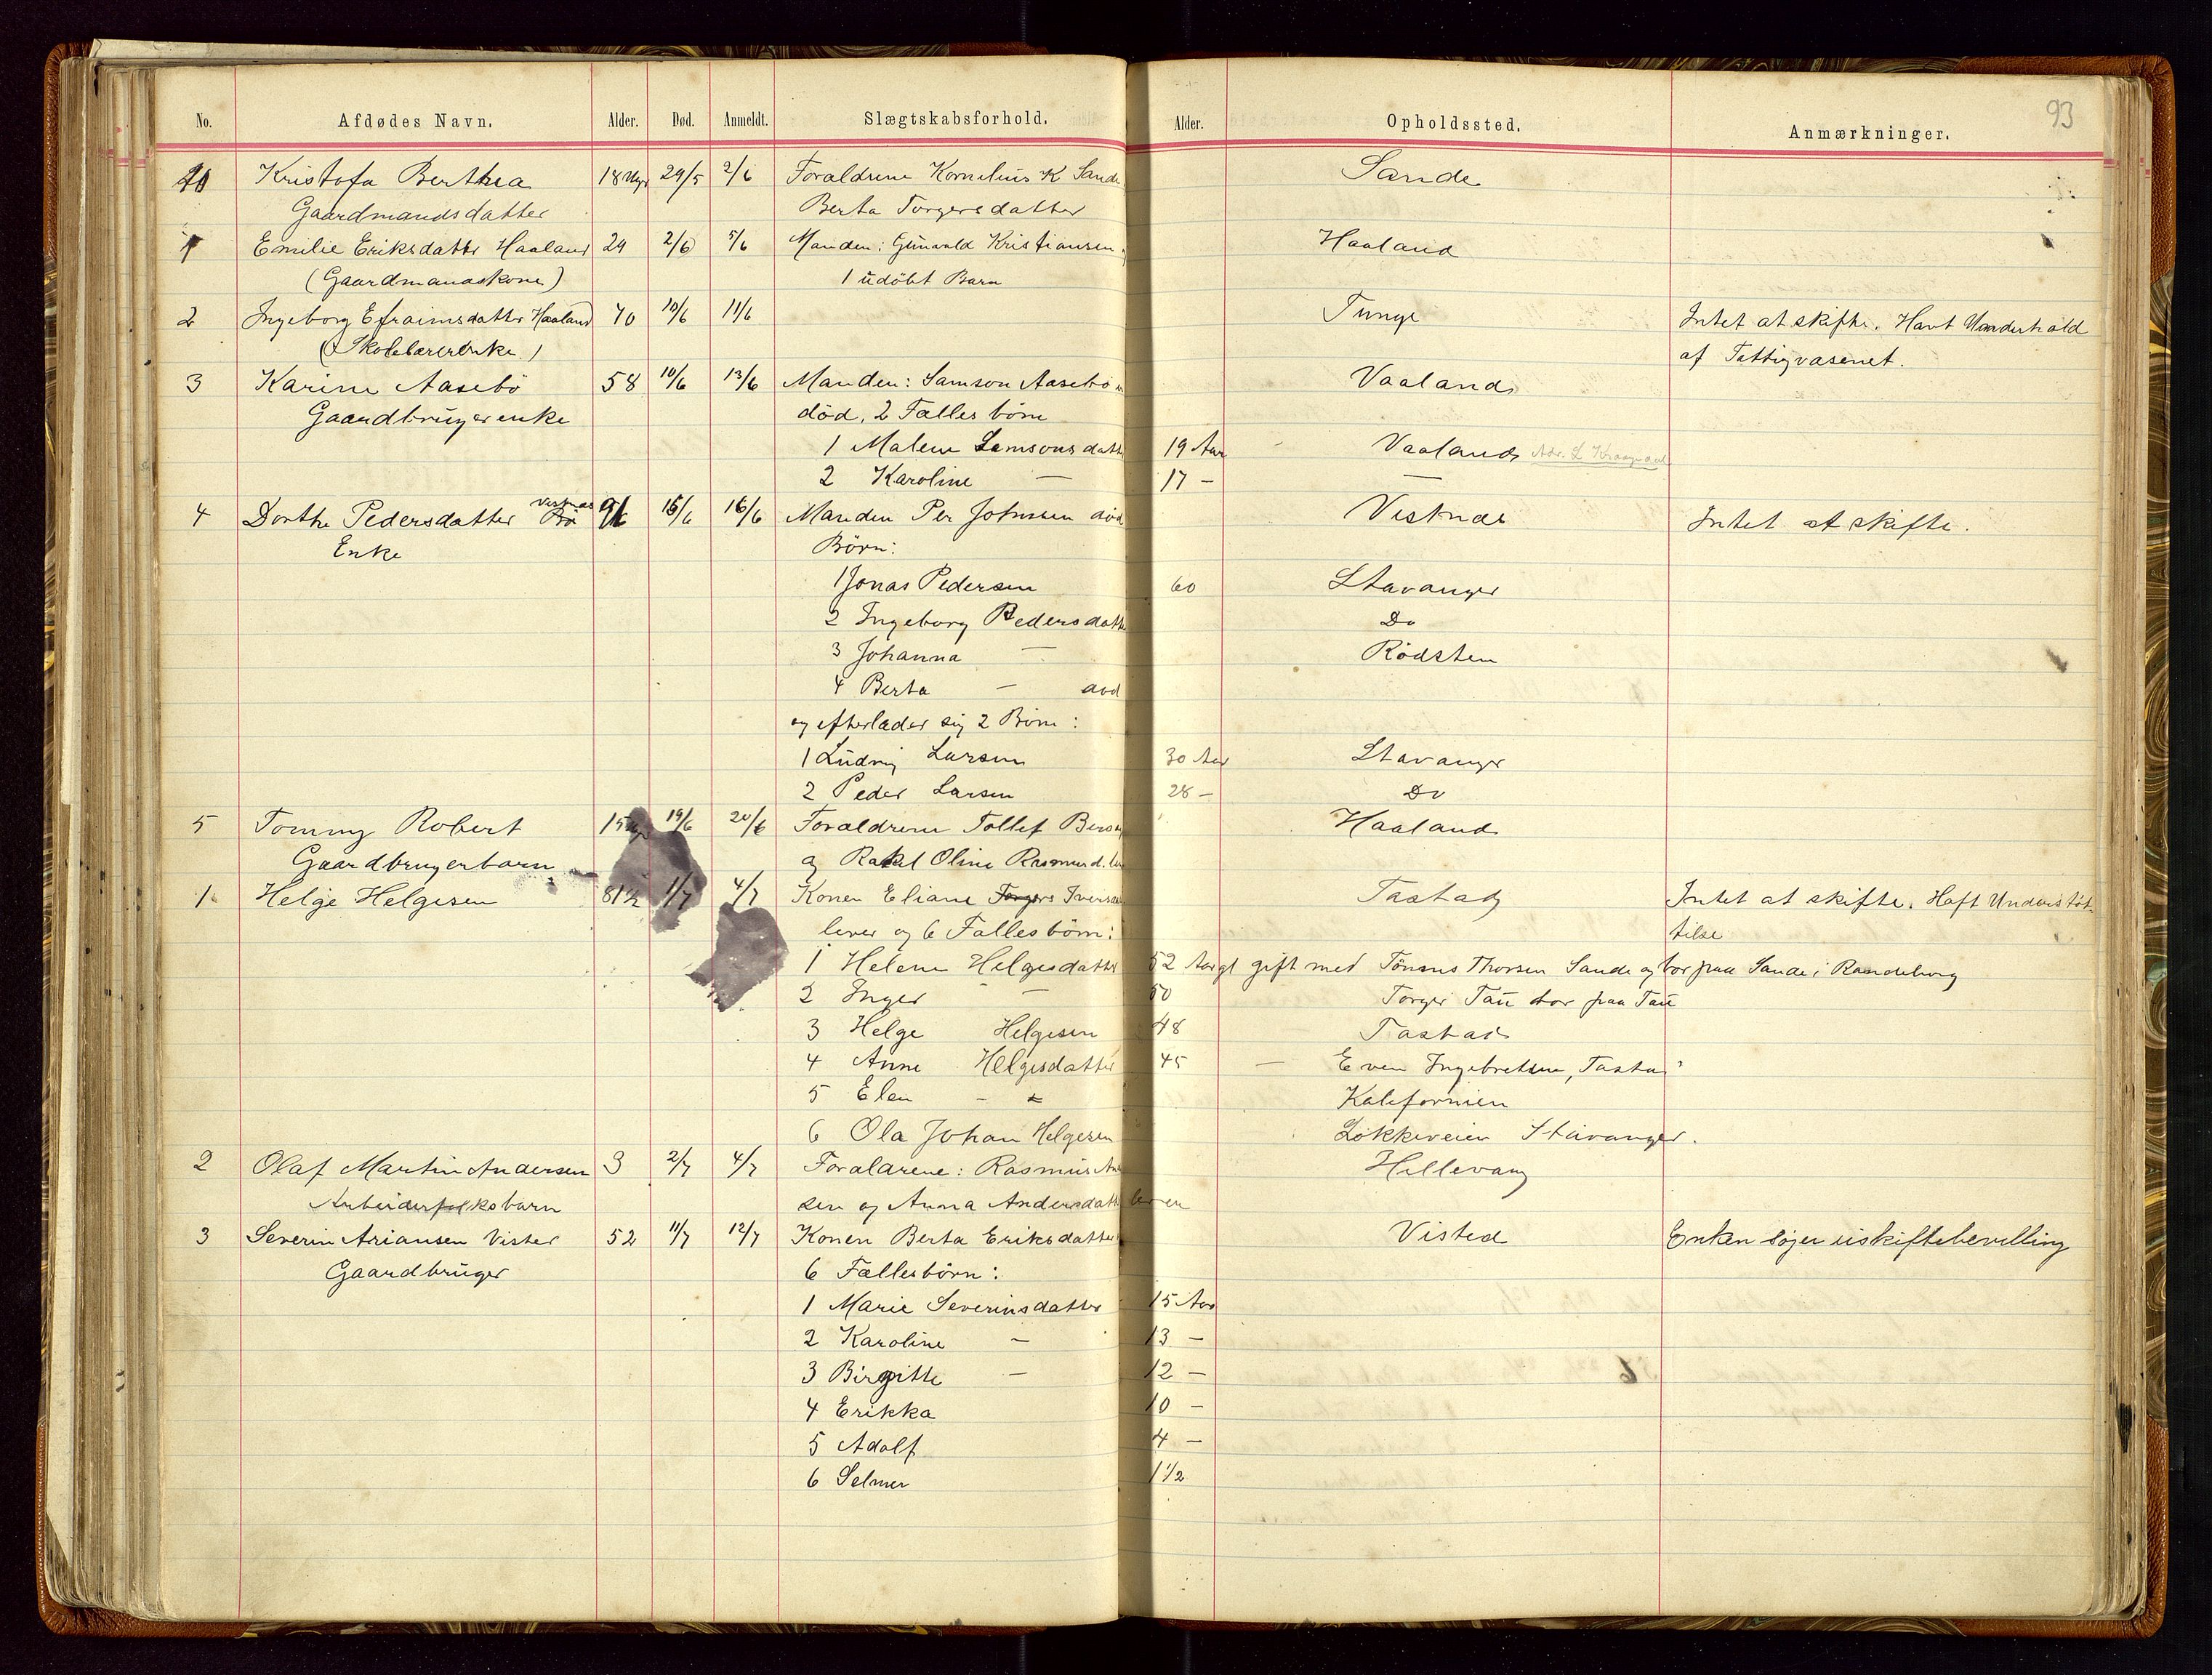 93
No. Afdødes Navn. Alder. Død. Anmeldt. Slægtskabsforhold. Alder. Opholdssted. Anmærkninger.
Kristofa Berthea 18 Uger 29/5 2/6 Forældrene Kornelius K Sande Sande
Gaardmandsdatter Berta Torgersdatter
1 Emilie Eriksdatter Haaland 24 2/6 5/6 Manden: Gunvald Kristiansen Haaland
(Gaardmandskone) 1 udöbt Barn
2 Ingeborg Efraimsdatter Haaland 70 10/6 11/6 Tunge Intet at skifte. Havt Underhold
(Skolelærerenke.) af Fattigvæsenet.
3 Karine Aasebö 58 10/6 13/6 Manden: Samson Aasebö Vaaland
Gaardbrugerenke död, 2 Fælles börn
1 Malene Samsonsdatt 19 Aar Vaaland
2 Karoline — 17 — —
4 Dorthe Pedersdatter Vestnes 15/6 16/6 Manden Per Johnsen död Vestnes Intet at skifte.
Enke Börn:
1 Jonas Pedersen 60 Stavanger
2 Ingeborg Pedersdatt Do
3 Johanna — Rödsten
4 Berta — död
og efterlader sig 2 Börn:
1 Ludvig Larsen 30 Aar Stavanger
2 Peder Larsen 28 — Do
5 Tommy Robert 15 19/6 20/6 Forældrene Tollef Haaland
Gaardbrugerbarn og Rakel Oline Rasmusd.
1 Helge Helgesen 81½ 1/7 4/7 Konen Eliane Torgers Iversd Tastad Intet at skifte. Haft Understöt-
lever og 6 Fællesbörn: telse
1 Helene Helgesdatter 52 Aar gl gift med Tönnes Thorsen Sande og bor paa Sande i Randeberg
2 Inger — 50 Torger Tau bor paa Tau
3 Helge Helgesen 48 Tastad
4 Anne Helgesdatter 45 — Even Ingebretsen, Tastad
5 Elen - Kalifornien
6 Ola Johan Helgesen Lökkeveien Stavanger.
2 Olaf Martin Andersen 3 2/7 4/7 Forældrene: Rasmus An Hillevaag
Arbeiderfolksbarn sen og Anna Andersdatt lever
3 Severin Ariansen Visted 52 11/7 12/7 Konen Berta Eriksdatter Visted Enken söger uskiftebevilling
Gaardbruger 6 Fællesbörn:
1 Marie Severinsdatter 15 Aar
2 Karoline — 13 —
3 Birgitte — 12 —
4 Erikka 10 —
5 Adolf 4 —
6 Selmer 1½